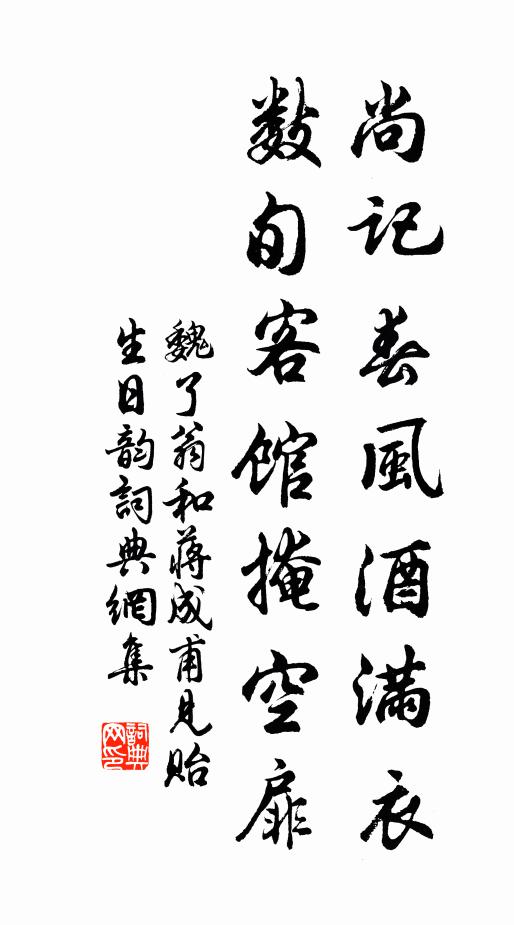 尚记春風酒满衣
数旬客馆掩空扉
魏了翁和蒋成甫見贻
生日韵詞典網集
詞典
网印